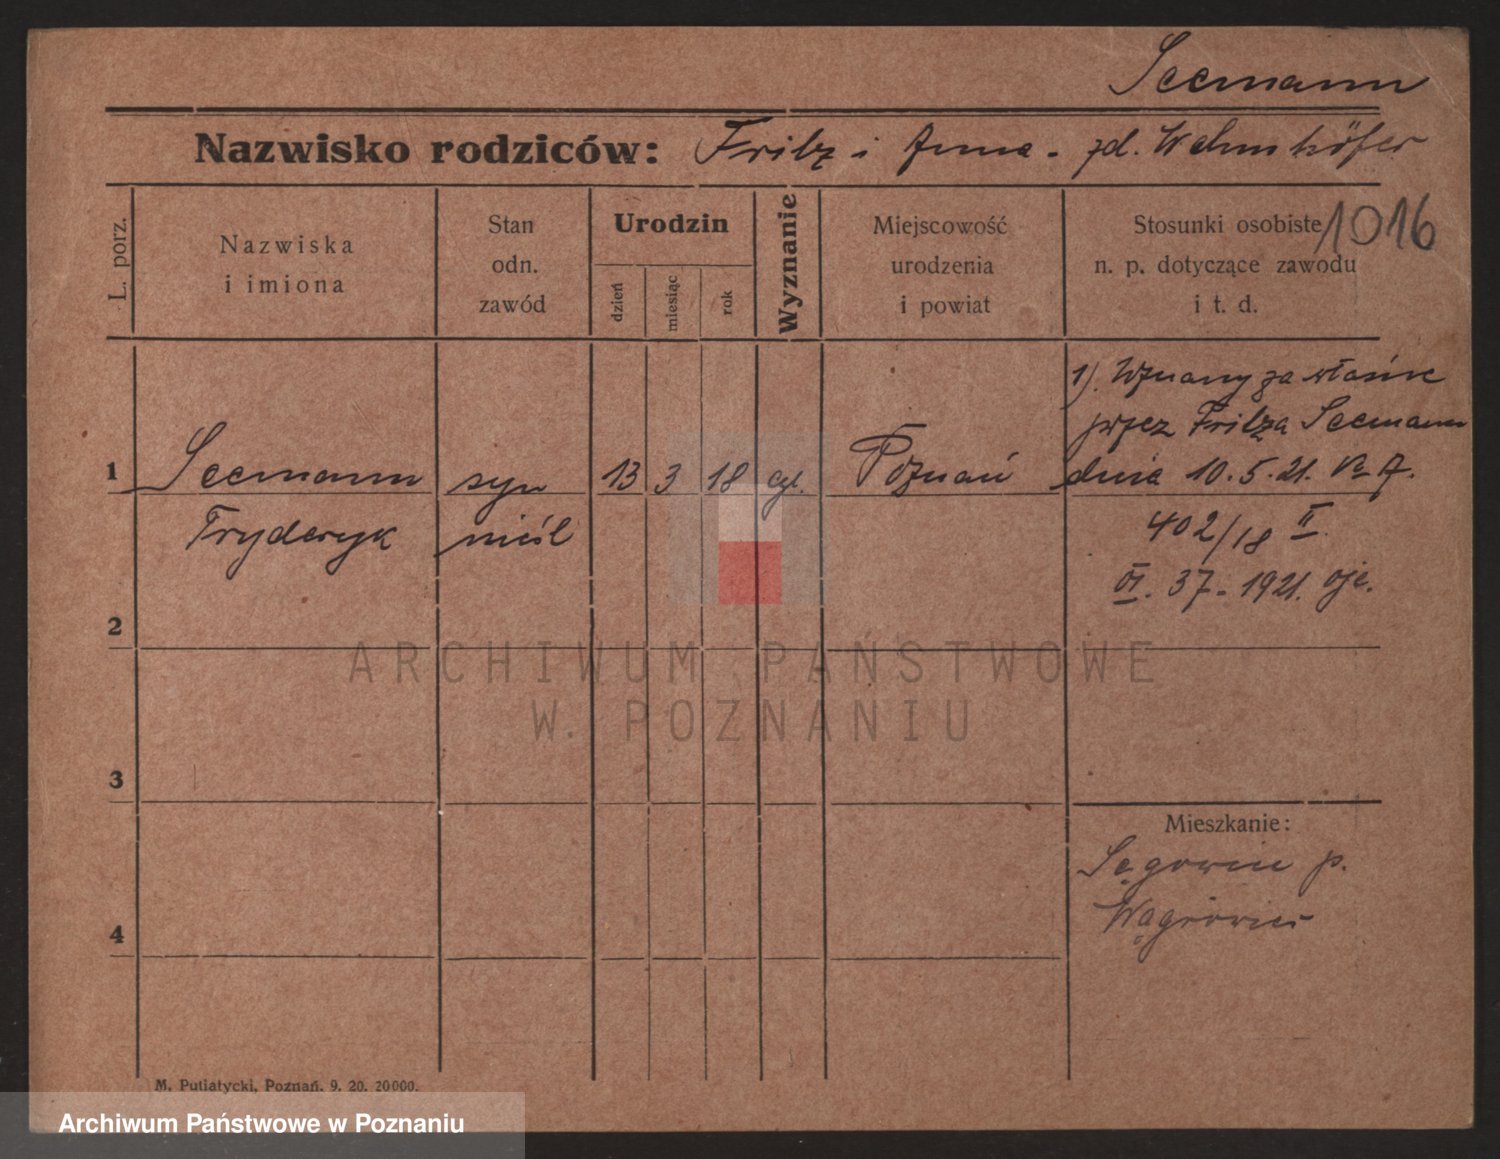 Seemann
Nazwisko rodziców: Fritz i Anna - zd. Wehmhöfer
L. porz.
Nazwiska
i imiona
Stan
odn.
zawód
Urodzin
dzień
miesiąc
rok
Wyznanie
Miejscowość
urodzenia
i powiat
Stosunki osobiste
n. p. dotyczące zawodu
i t. d.
1016
1 Seemann syn 13 3 18 Poznań
Fryderyk nieśl
1). Uznany za własne
przez Fritza Seemann
dnia 10.5.21. A.
402/18 II.
VI. 37-1921.
2
3
4
Mieszkanie:
p.
Wągrowiec
M. Putiatycki, Poznań. 9. 20. 20000.
ARCHIWUM PAŃSTWOWE
W. POZNANIU
Archiwum Państwowe w Poznaniu